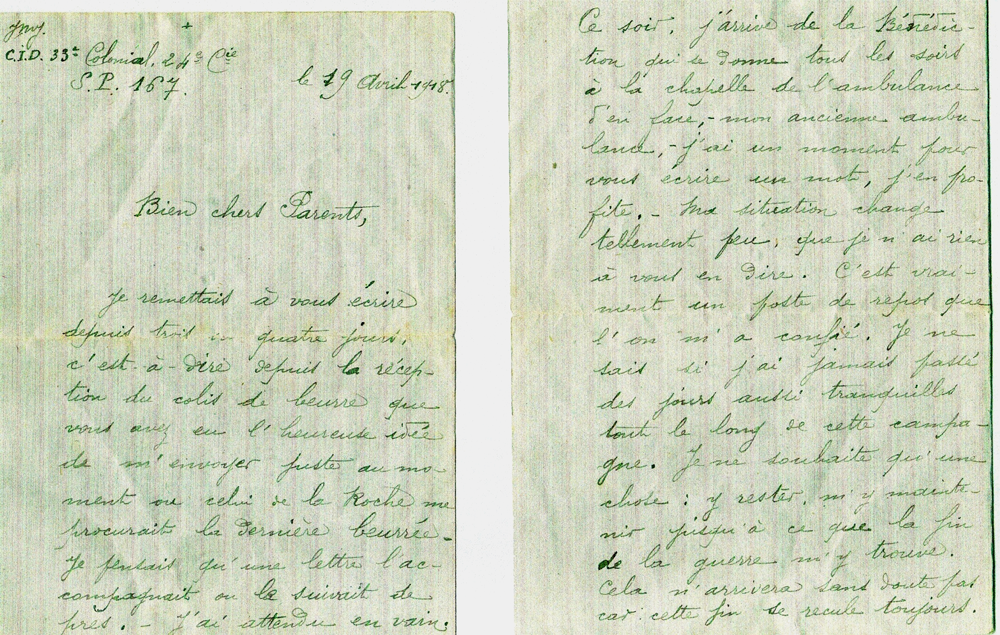 +
C.I.D. 33e Colonial. 24e Cie
S.P. 167.
le 19 Avril 1918.
Bien chers Parents,
Je remettais à vous écrire
depuis trois ou quatre jours,
c'est-à-dire depuis la récep-
tion du colis de beurre que
vous avez eu l'heureuse idée
de m'envoyer juste au mo-
ment ou celui de la Roche me
procurait la dernière beurrée.
Je pensais qu'une lettre l'ac-
compagnait ou le suivait de
près. - J'ai attendu en vain.
Ce soir, j'arrive de la Bénédic-
tion qui se donne tous les soirs
à la chapelle de l'ambulance
d'en face, - mon ancienne ambu-
lance, - j'ai un moment pour
vous écrire un mot, j'en pro-
fite. - Ma situation change
tellement peu, que je n'ai rien
à vous en dire. C'est vrai-
ment un poste de repos que
l'on m'a confié. Je ne
sais si j'ai jamais passé
des jours aussi tranquilles
tout le long de cette campa-
gne. Je ne souhaite qu'une
chose : y rester, m'y mainte-
nir jusqu'à ce que la fin
de la guerre m'y trouve.
Cela n'arrivera sans doute pas
car cette fin se recule toujours.